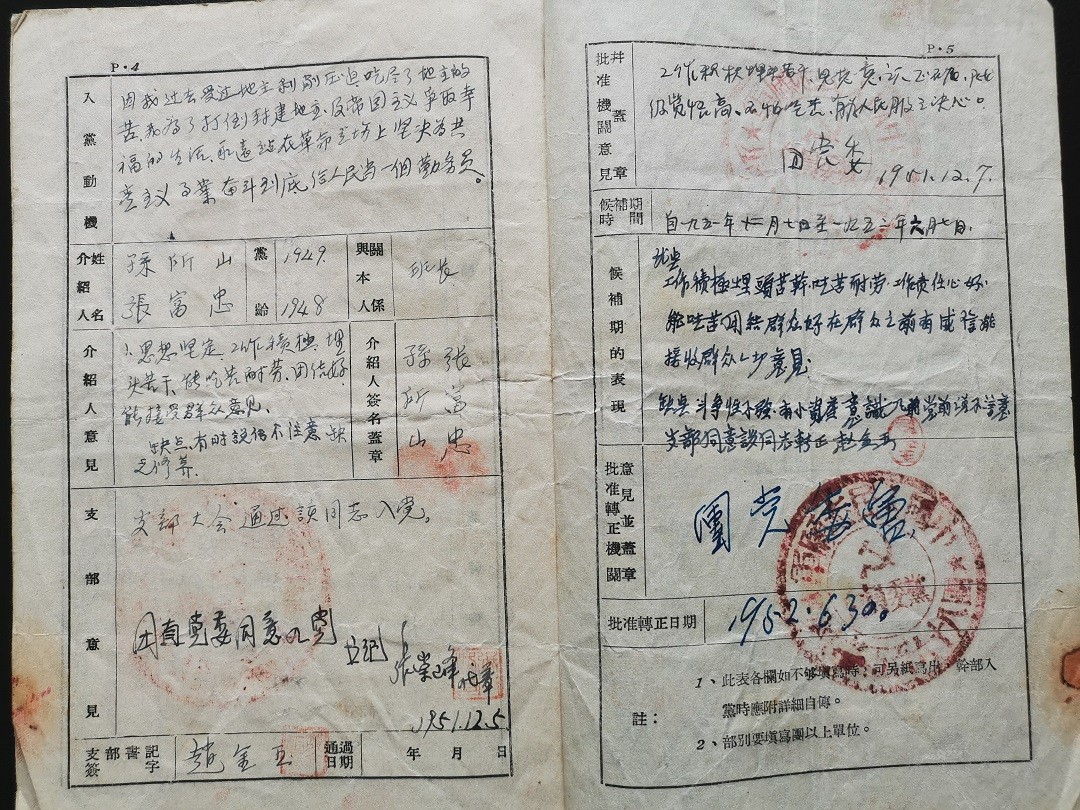 P·4
入黨動機
因我过去受过地主剥削压迫吃尽了地主的
苦.我为了打倒封建地主.及帝国主义争取幸
福的生活.永远站在革命立场上坚决为共
产主义事業奋斗到底给人民当一个勤务员。
介紹人姓名
孫所山
張富忠
黨齡
1949.
1948
與本人關係
班长
介紹人意見
1.思想坚定.工作積極.埋
头苦干.能吃苦耐劳.团结好.
能接受群众意見.
缺点.有时說話不注意.缺
乏修养.
介紹人簽名蓋章
張富忠
孫所山
支部意見
支部大会通过該同志入党。
团直党委同意入党
1951.12.5.
支部書記簽字
趙金玉
通過日期
年 月 日
P·5
批准機關意見并蓋章
工作积极埋头苦干.
级觉悟高.不怕吃苦.有为人民服务决心。
团党委
1951.12.7.
候補時期期間
自一九五一年十二月七日至一九五二年六月七日.
候補期的表現
优点
工作積極埋頭苦幹.吃苦耐劳.工作责任心好.
能吃苦团结群众好在群众之前有威信能
接收群众一切意見.
缺点.斗争性不强.有小資產意識
支部同意該同志轉正.趙金玉
批准轉正機關意見並蓋章
團党委
批准轉正日期
1952.6.30.
註：
1、此表各欄如不够填寫時，可另紙寫出，幹部入
黨時應附詳細自傳。
2、部別要填寫團以上單位。